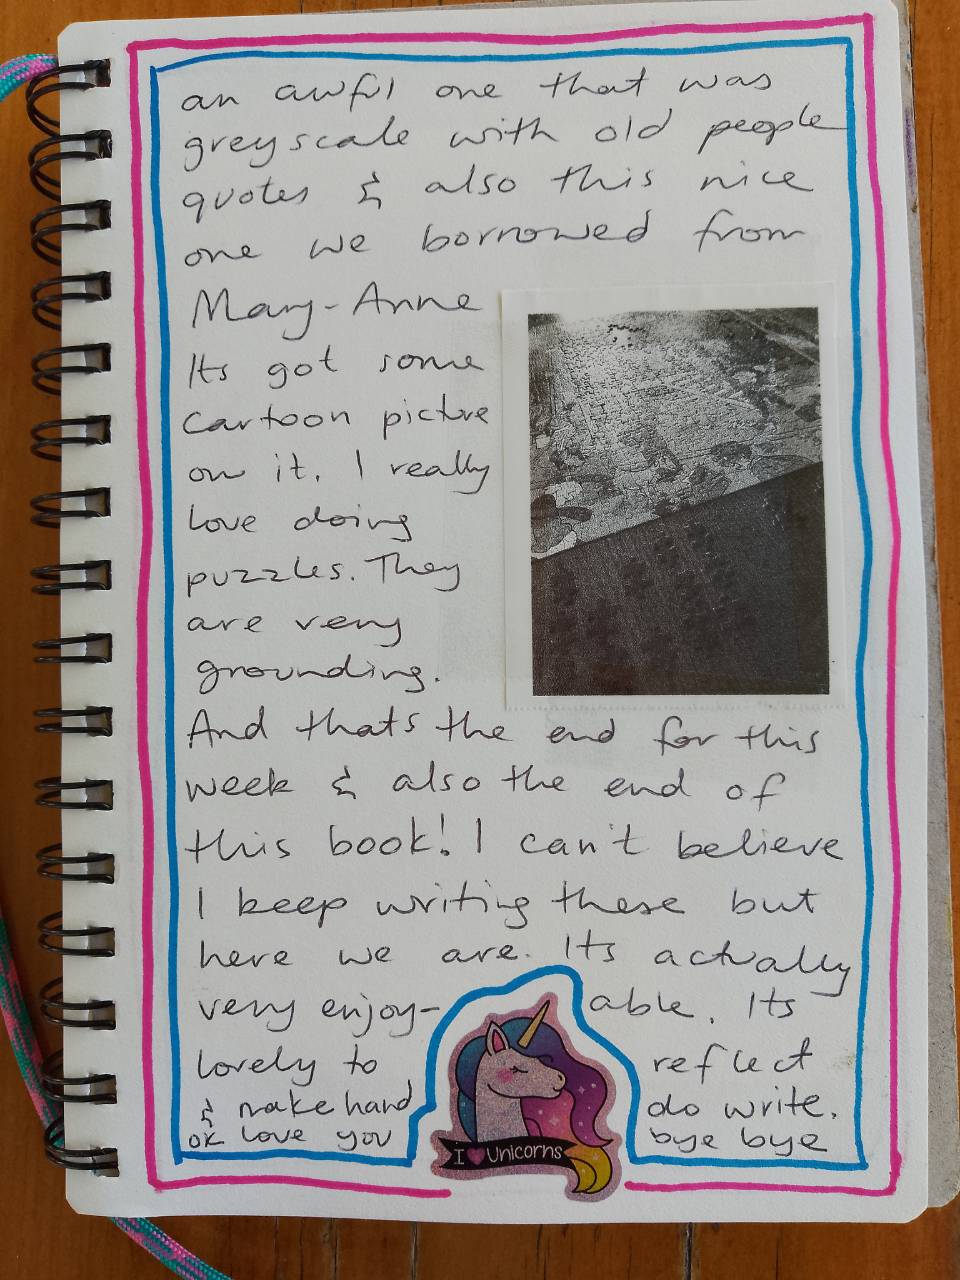 an awful one that was
greyscale with old people
quotes & also this nice
one we borrowed from
Mary-Anne
Its got some
cartoon picture
on it. I really
love doing
puzzles. They
are very
grounding.
And thats the end for this
week & also the end of
this book! I can't believe
I keep writing these but
here we are. Its actually
very enjoy- able. Its
lovely to reflect
& make hand do write.
ok love you bye bye
I ♥ Unicorns